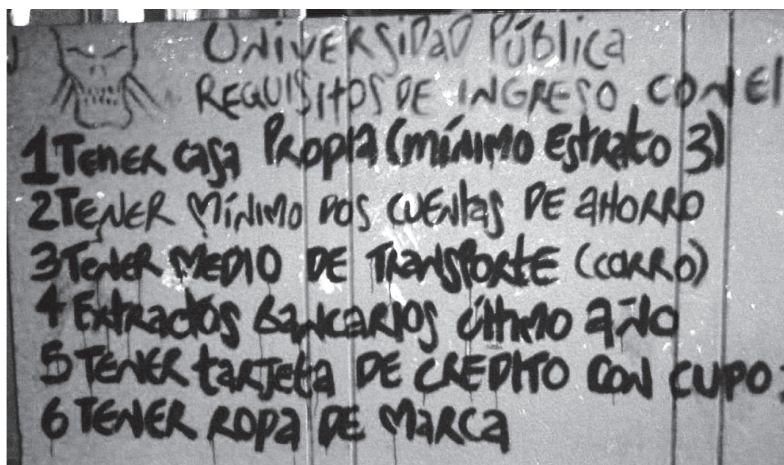 UNiVERSiDAD Pública
REQUISitOS DE iNGRESO CON El
1 TENER CASA PROPIA (MíNiMO EStRAtO 3)
2 TENER MíNiMO DOS CUENtAS DE AHORRO
3 TENER MEDIO DE TRANSPORTE (CARRO)
4 ExtRActOS BANCARIOS últiMO AÑO
5 TENER tARJEtA DE CREDITO CON CUPO
6 TENER ROPA DE MARCA